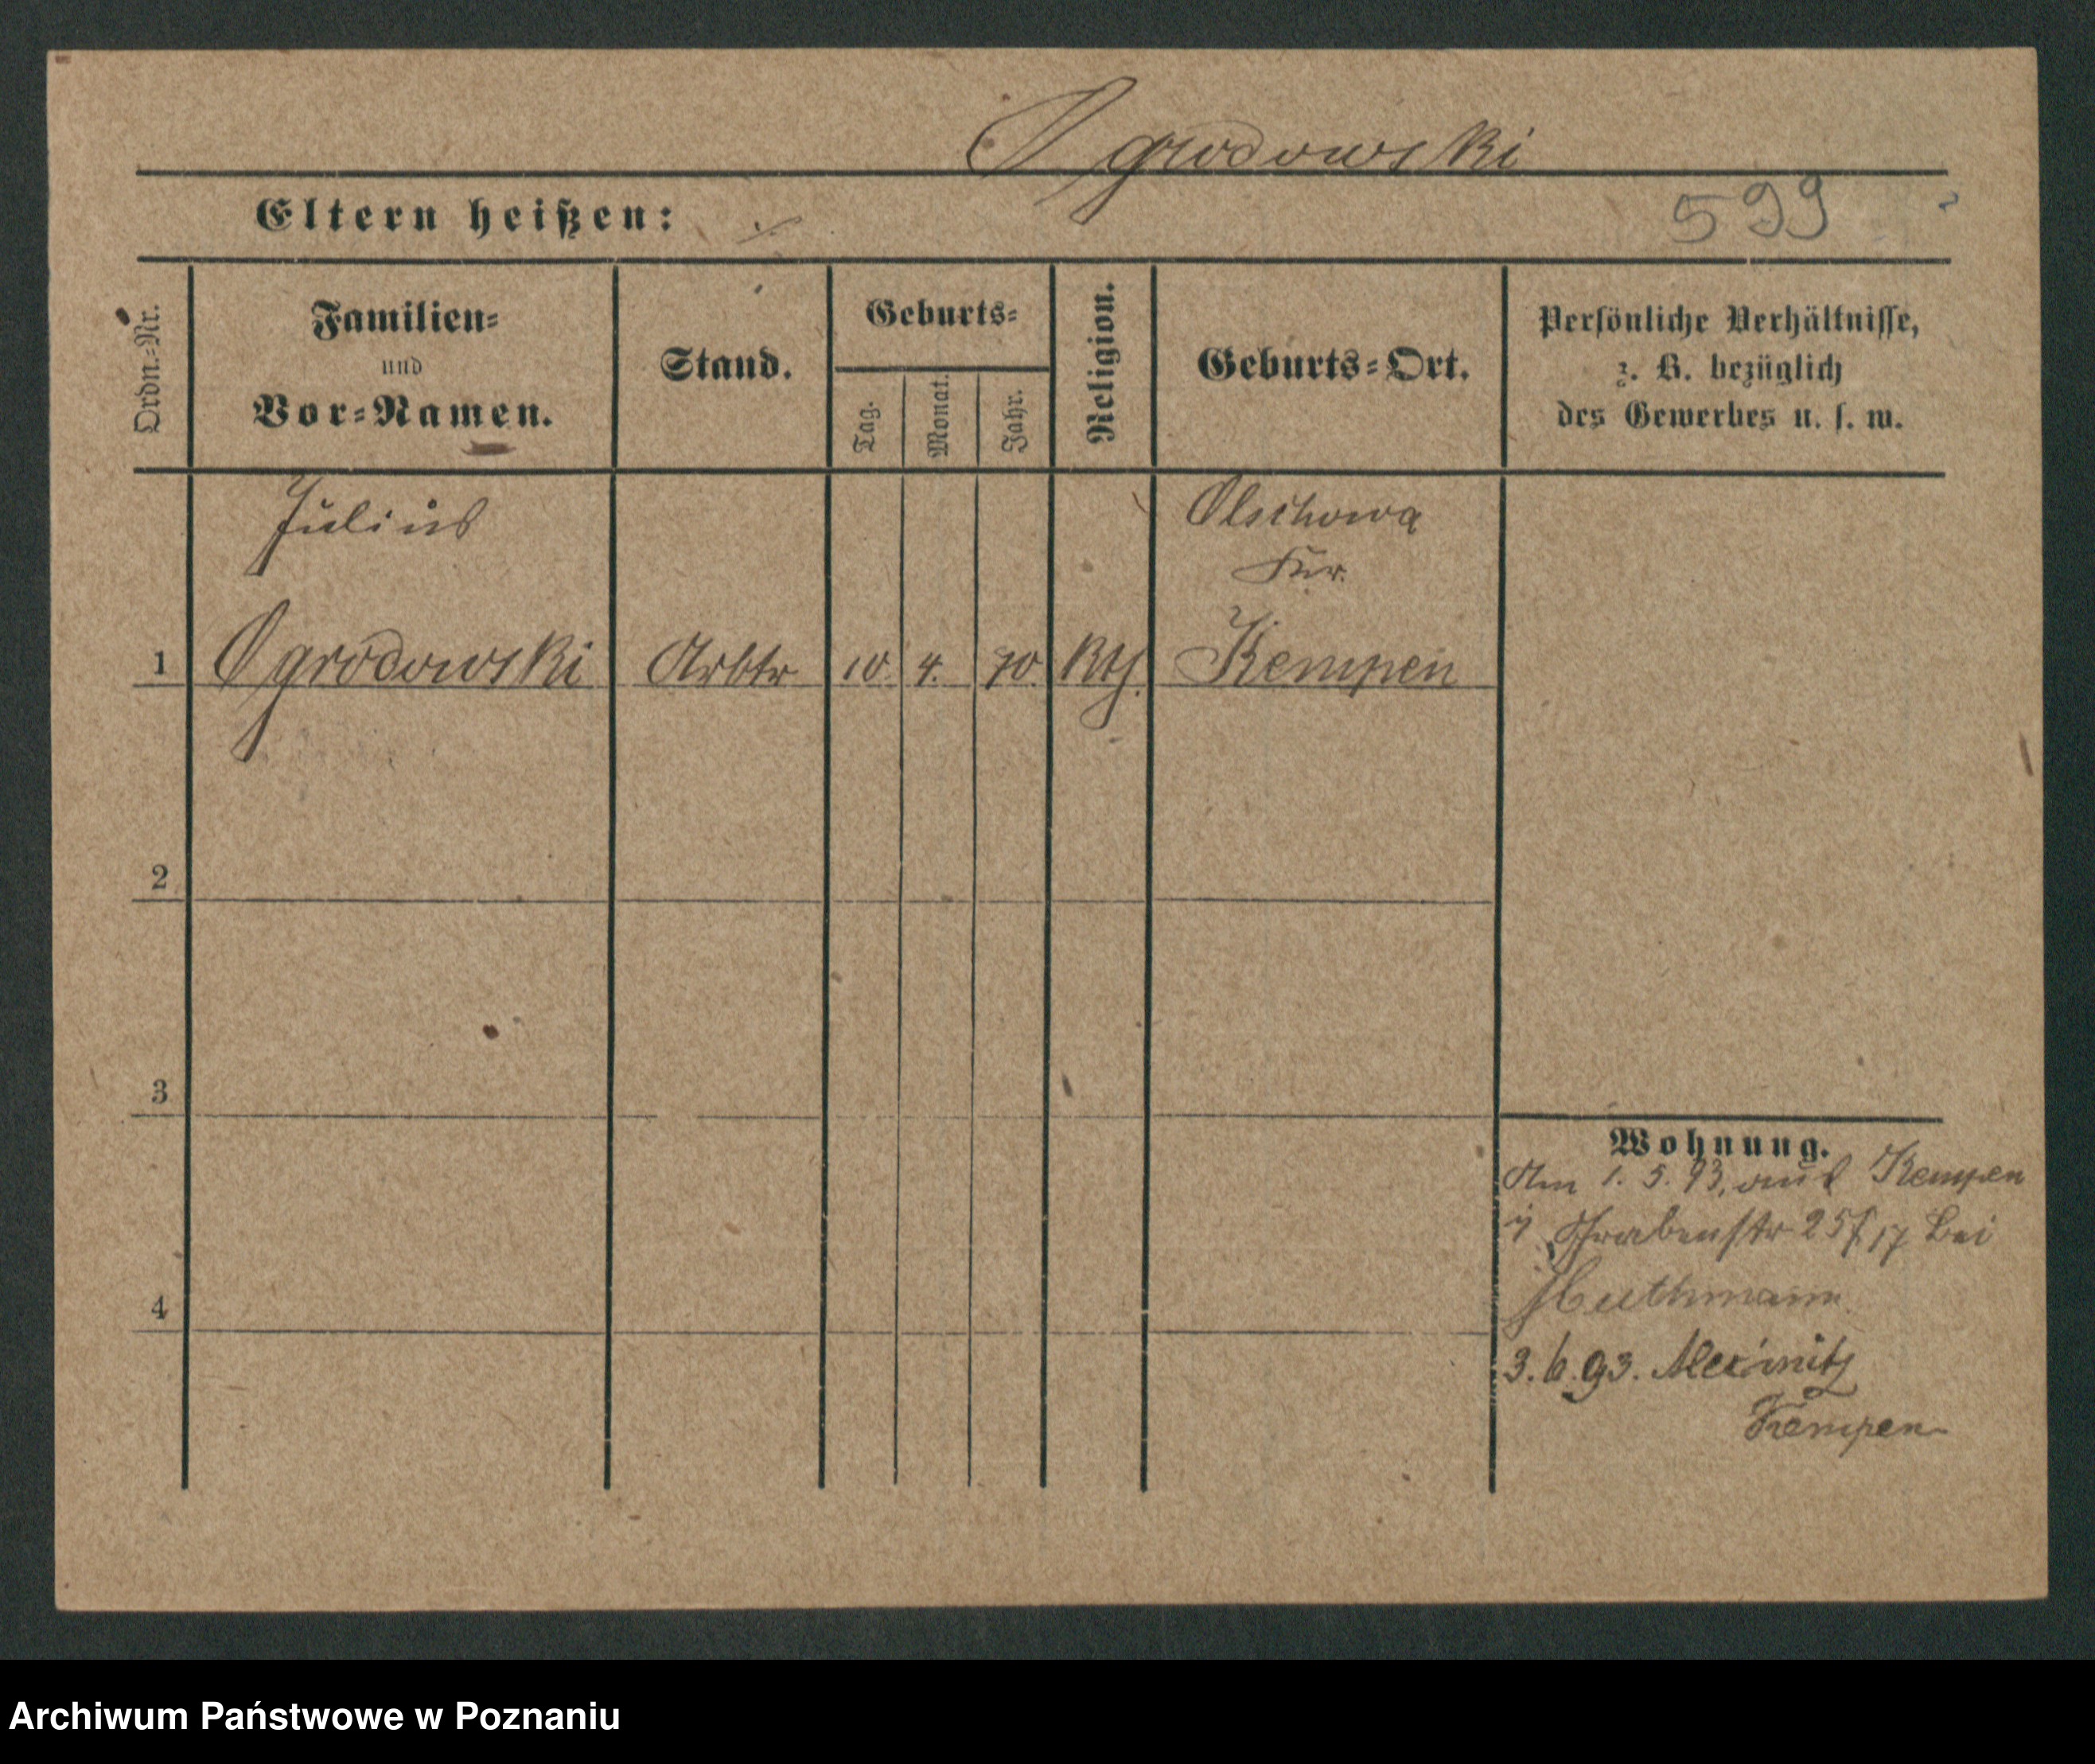 Ogrodowski
Eltern heißen: ⁒
599
Ordn.-Nr.
Familien-
und
Vor-Namen.
Stand.
Geburts-
Tag.
Monat.
Jahr.
Religion.
Geburts-Ort.
Persönliche Verhältnisse,
z. B. bezüglich
des Gewerbes u. s. w.
Julius
Olschowa
Kr.
1 Ogrodowski Arbtr 10. 4. 70. Kth. Kempen
2
3
4
Wohnung.
Am 1. 5. 93, aus Kempen
Grabenstr 25 17 bei
Huthmann
3.6.93.
Kempen
Archiwum Państwowe w Poznaniu